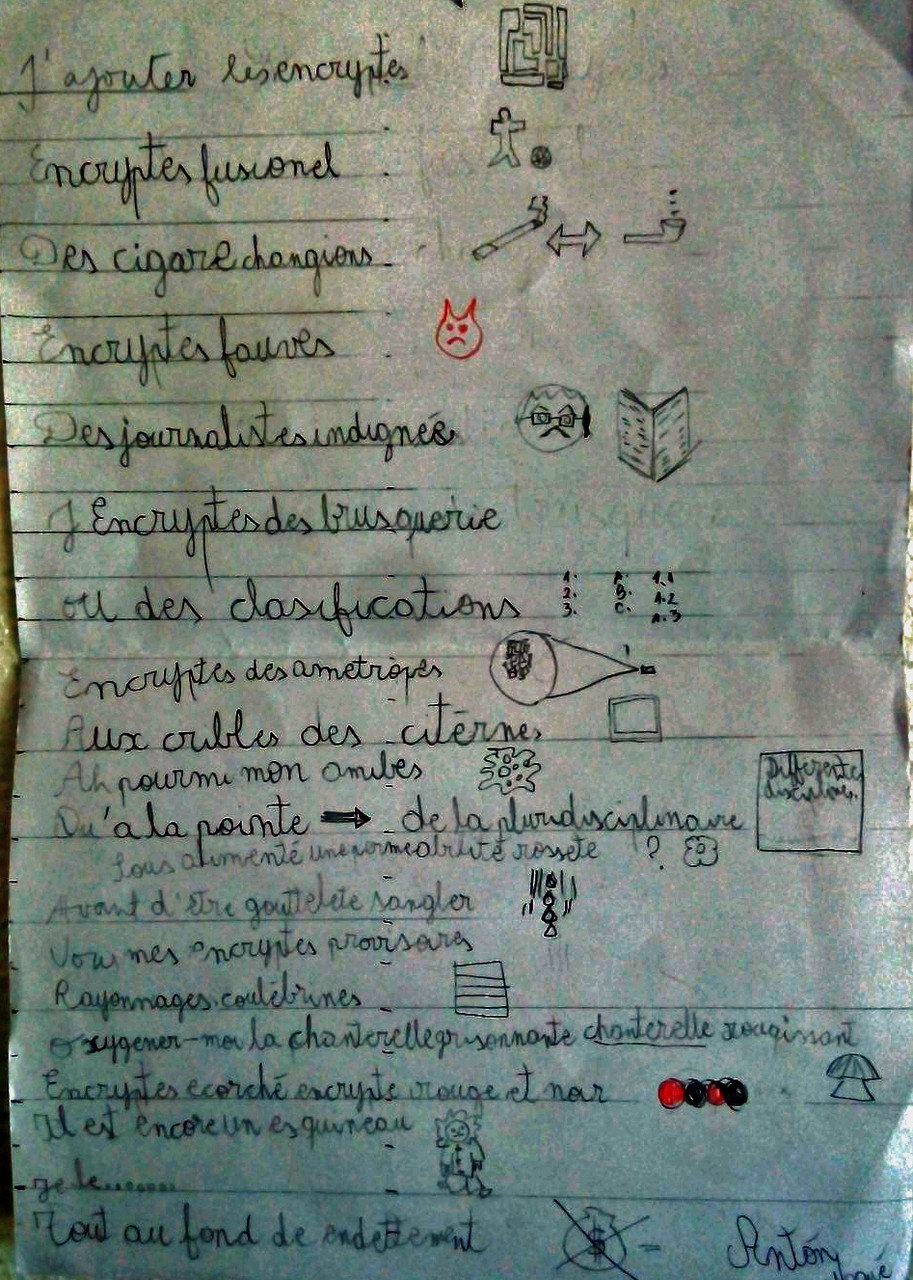 J'ajouter les encryptes
Encryptes fusionel
Des cigare changions
Encryptes fauves
Des journalistes indignés
J Encryptes des brusquerie
ou des clasifications 1. A. 1.1
2. B. A.2
3. C. A.3
Encryptes des ametropes
Aux cribles des citernes
Ah pourmi mon amibes
Différente
disciplines.
Qu'a la pointe de la pluridisciplinaire
Sous alimenté une perméabilité rossete ?
Avant d'être gouttelete sangler
Vous mes encryptes provisoires
Rayonnages coulébrines
oxygener-moi la chanterelle grisonnante chanterelle rougissant
Encryptes ecorché encrypte rouge et noir
Il est encore un esquineau
je le.......
Tout au fond de endettement $ = Antón